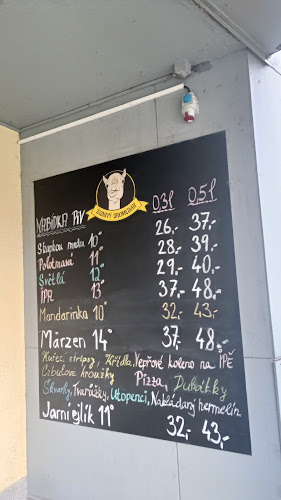 NABÍDKA PIV 0,3l 0,5l
10° 26,- 37,-
Polotmavá 11° 28,- 39,-
Světlá 12° 29,- 40,-
IPA 13° 37,- 48,-
Mandarinka 10° 32,- 43,-
Märzen 14° 37,- 48,-
Kuřecí stripsy, Křídla, Vepřové koleno na IPĚ
Cibulové kroužky Pizza, Dukátky
Škvarky, Tvarůžky, Utopenci, Nakládaný hermelín
Jarní ejlík 11° 32,- 43,-